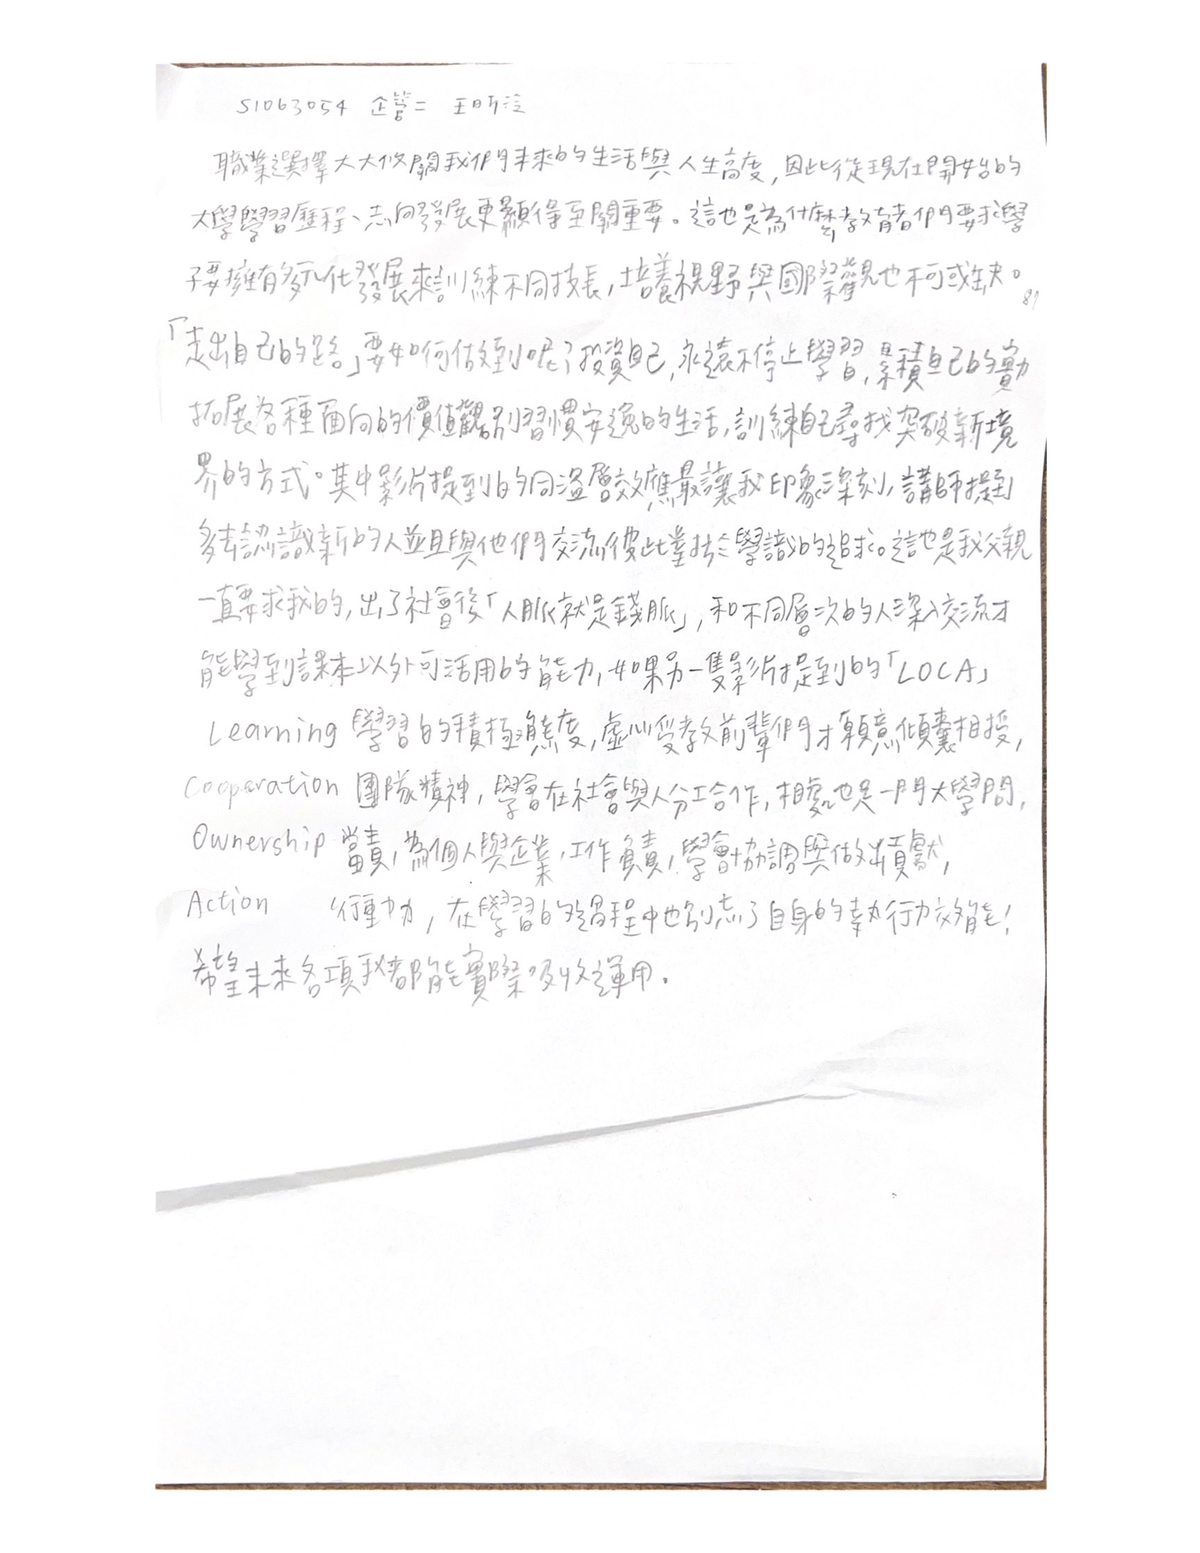 S1063054 企管二 王昕
職業選擇大大攸關我們未來的生活與人生高度,因此從現在開始的
大學學習歷程、志向發展更顯得至關重要。這也是為什麼教育者們要求學
子要擁有多元化發展來訓練不同技長,培養視野與國際觀也不可或缺。
「走出自己的路」要如何做到呢?投資自己,永遠不停止學習,累積自己的實力
拓展各種面向的價值觀別習慣安逸的生活,訓練自己尋找突破新境
界的方式。其中影片提到的同溫層效應最讓我印象深刻,講師提到
多去認識新的人並且與他們交流彼此對於學識的追求。這也是我父親
一直要求我的,出了社會後「人脈就是錢脈」,和不同層次的人深入交流才
能學到課本以外可活用的能力,如果另一隻影片提到的「LOCA」
Learning 學習的積極態度,虛心受教前輩們才願意傾囊相授,
Cooperation 團隊精神,學會在社會與人分工合作,相處也是一門大學問,
Ownership 當責,為個人與企業,工作負責,學會協調與做出貢獻,
Action 行動力,在學習的過程中也別忘了自身的執行力效能!
希望未來各項我都能實際吸收運用。